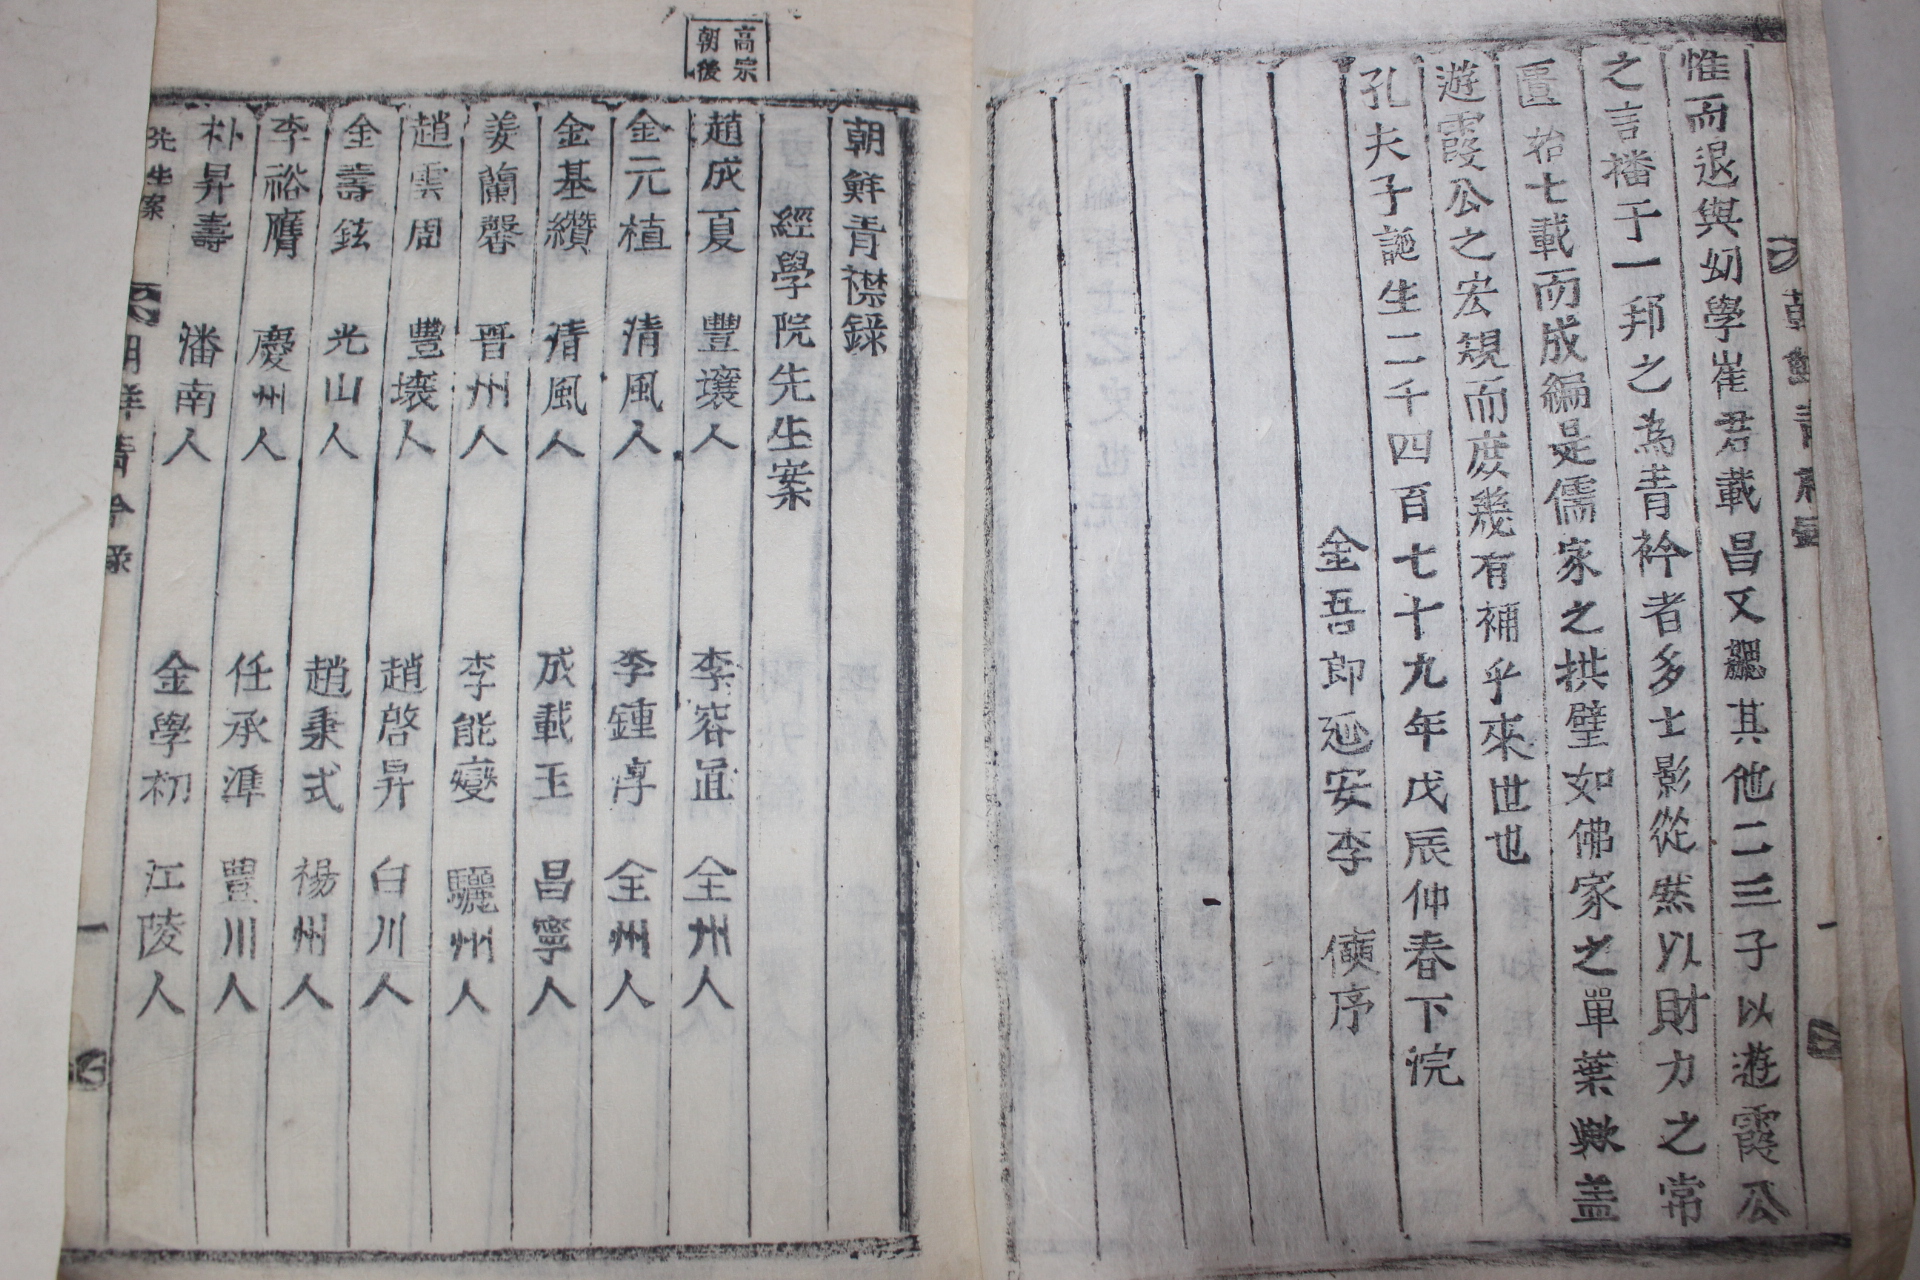 惟而退與幼學崔君載昌又勰其他二三子以遊霞公
之言播于一邦之為青衿者多士影從然以財力之常
匱始七載而成編是儒家之拱璧如佛家之單葉歟盖
遊霞公之宏規而庶幾有補乎來世也
孔夫子誕生二千四百七十九年戊辰仲春下浣
金吾郎延安李 序
朝鮮青襟錄
高宗
朝後
朝鮮青襟錄
經學院先生案
趙成夏 豐壤人 李容直 全州人
金元植 清風人 李鍾淳 全州人
金基纘 清風人 成載玉 昌寧人
姜蘭馨 晋州人 李能燮 驪州人
趙雲周 豐壤人 趙啓昇 白川人
金壽鉉 光山人 趙秉式 楊州人
李裕膺 慶州人 任承準 豊川人
朴昇壽 潘南人 金學初 江陵人
先生案 朝鮮青衿錄 一